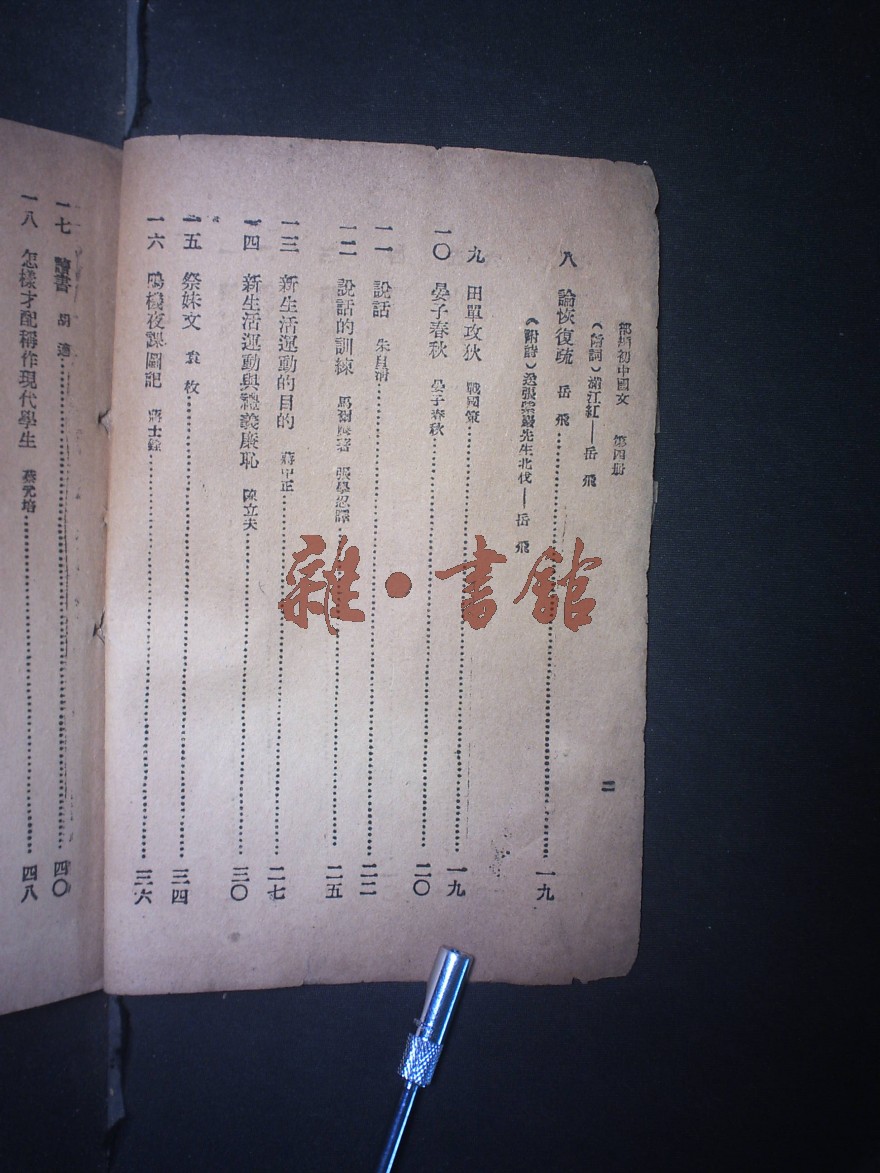 部編初中國文 第四册
二
八 論恢復疏 岳飛 一九
(附詞)滿江紅——岳飛
(附詩)送張紫巖先生北伐——岳飛
九 田單攻狄 戰國策 一九
一〇 晏子春秋 晏子春秋 二〇
一一 說話 朱自清 二二
一二 說話的訓練 馬爾騰著 張學忍譯 二五
一三 新生活運動的目的 蔣中正 二七
一四 新生活運動與禮義廉恥 陳立夫 三〇
一五 祭妹文 袁枚 三四
一六 鳴機夜課圖記 蔣士銓 三六
一七 讀書 胡適 四〇
一八 怎樣才配稱作現代學生 蔡元培 四八
雜·書館